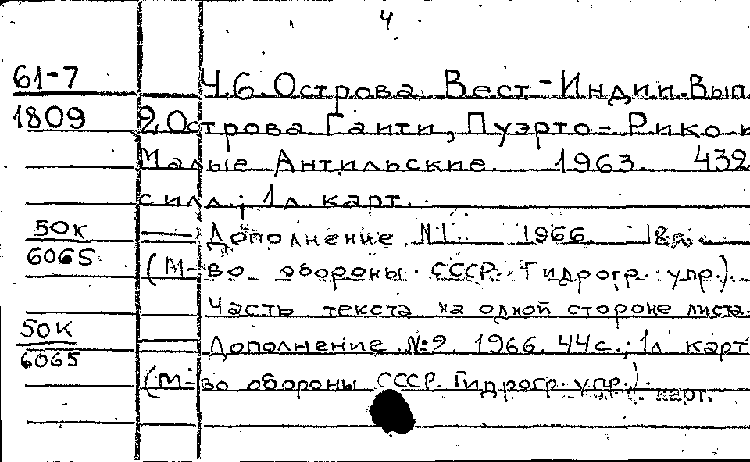 4
61-7 Ч.6. Острова Вест-Индии. Вып.
1809 2. Острова Гаити, Пуэрто-Рико и
Малые Антильские. 1963. 432
с илл; 1л карт.
50к — Дополнение №1. 1966. 18с. —
6065 (М-во обороны СССР. Гидрогр. упр.).
Часть текста на одной стороне листа.
50к — Дополнение №2. 1966. 44с.; 1л карт
6065 (М-во обороны СССР. Гидрогр. упр.).
карт.